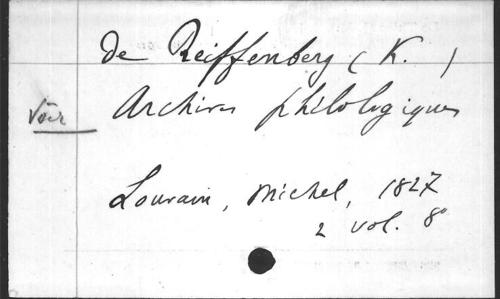 de Reiffenberg ( K. )
Voir Archives philologiques
Louvain, Michel, 1827
2 vol. 8°